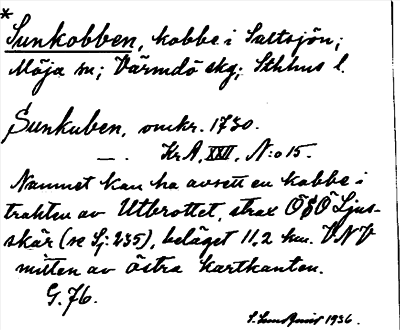 *
Sunkobben, kobbe i Saltsjön;
Möja sn; Värmdö skg; Sthlms l.
Sunkuben, omkr. 1730.
— . Kr A, XXII, N:o 15.
Namnet kan ha avsett en kobbe i
trakten av Utbrottet, strax ÖSÖ Ljus-
skär (se Sj: 235), beläget 11,2 km. VNV
mitten av östra kartkanten.
G. 76.
1936.